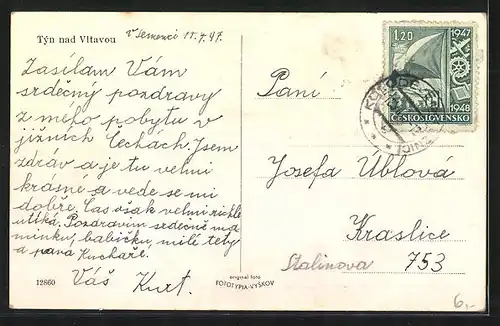 Týn nad Vltavou
v Semenci 11.7.47.
Zasílam Vám
srdečný pozdravy
z mého pobytu v
jižních Čechách. Jsem
zdráv a je tu velmi
krásné a vede se mi
dobře. Čas však velmi richle
utíká. Pozdravím srdečně ma
minku, babičku, milé tety
a pana Kuchaře.
Váš Kurt.
12860
original foto
FOTOTYPIA-VYŠKOV
1.20
1947
1948
ČESKOSLOVENSKO
Paní
Josefa Üblová
Kraslice
Stalinova 753
6,-